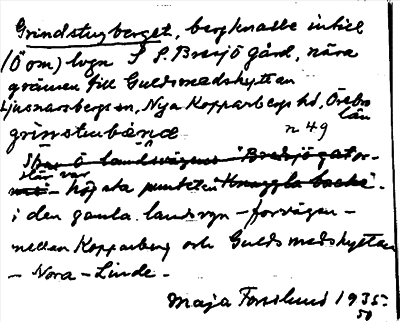 Grindstugberget, bergknalle intill
(Ö om) lvgn S P. Bresjö gård, nära
gränsen till Guldsmedshyttan
Ljusnarsbergs sn, Nya Kopparbergs hd, Örebro län
gränstubånd n 49
Ö landsvägens Bredsjö gator-
där var
högsta punkten Knuggla backe -
i den gamla landsvgn - forvägen -
mellan Kopparberg och Guldsmedshyttan
- Nora - Linde -
Maja Forslund 1935-
50